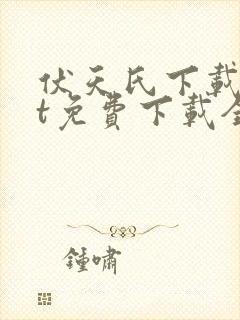 伏天氏下載
t免費下載全
鍾嘯